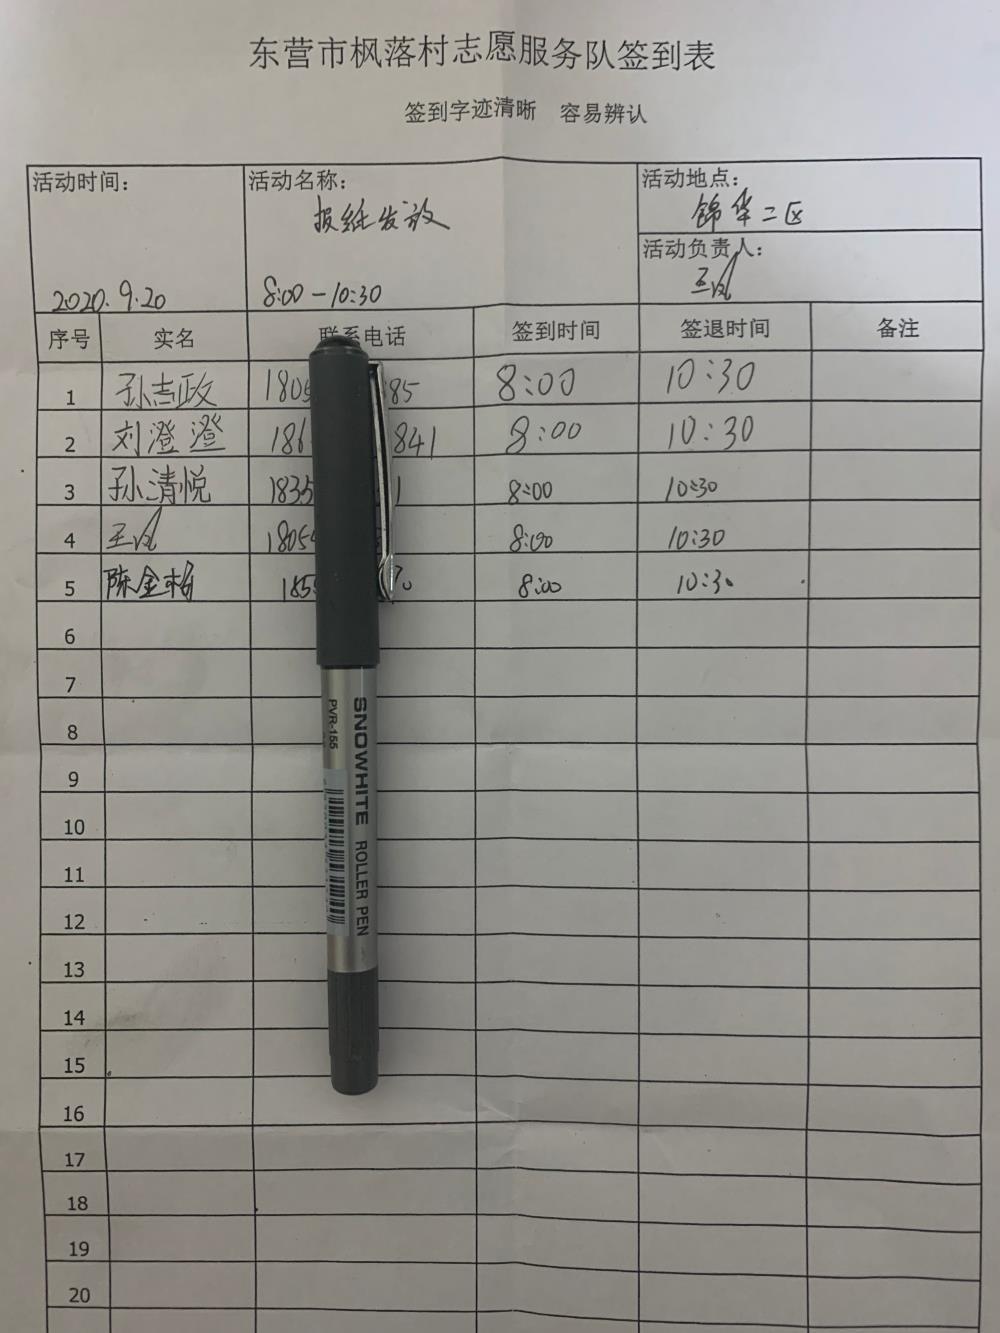 东营市枫落村志愿服务队签到表
签到字迹清晰 容易辨认
活动时间: 活动名称: 活动地点:
报纸发放 锦华二区
活动负责人:
2020.9.20 8:00-10:30 王凤
序号 实名 联系电话 签到时间 签退时间 备注
1 孙志政 1805 85 8:00 10:30
2 刘澄澄 186 841 8:00 10:30
3 孙清悦 1835 1 8:00 10:30
4 王凤 1805 8:00 10:30
5 陈金 185 8:00 10:30
6
7
8
9
10
11
12
13
14
15
16
17
18
19
20
SNOWHITE ROLLER PEN
PVR-155